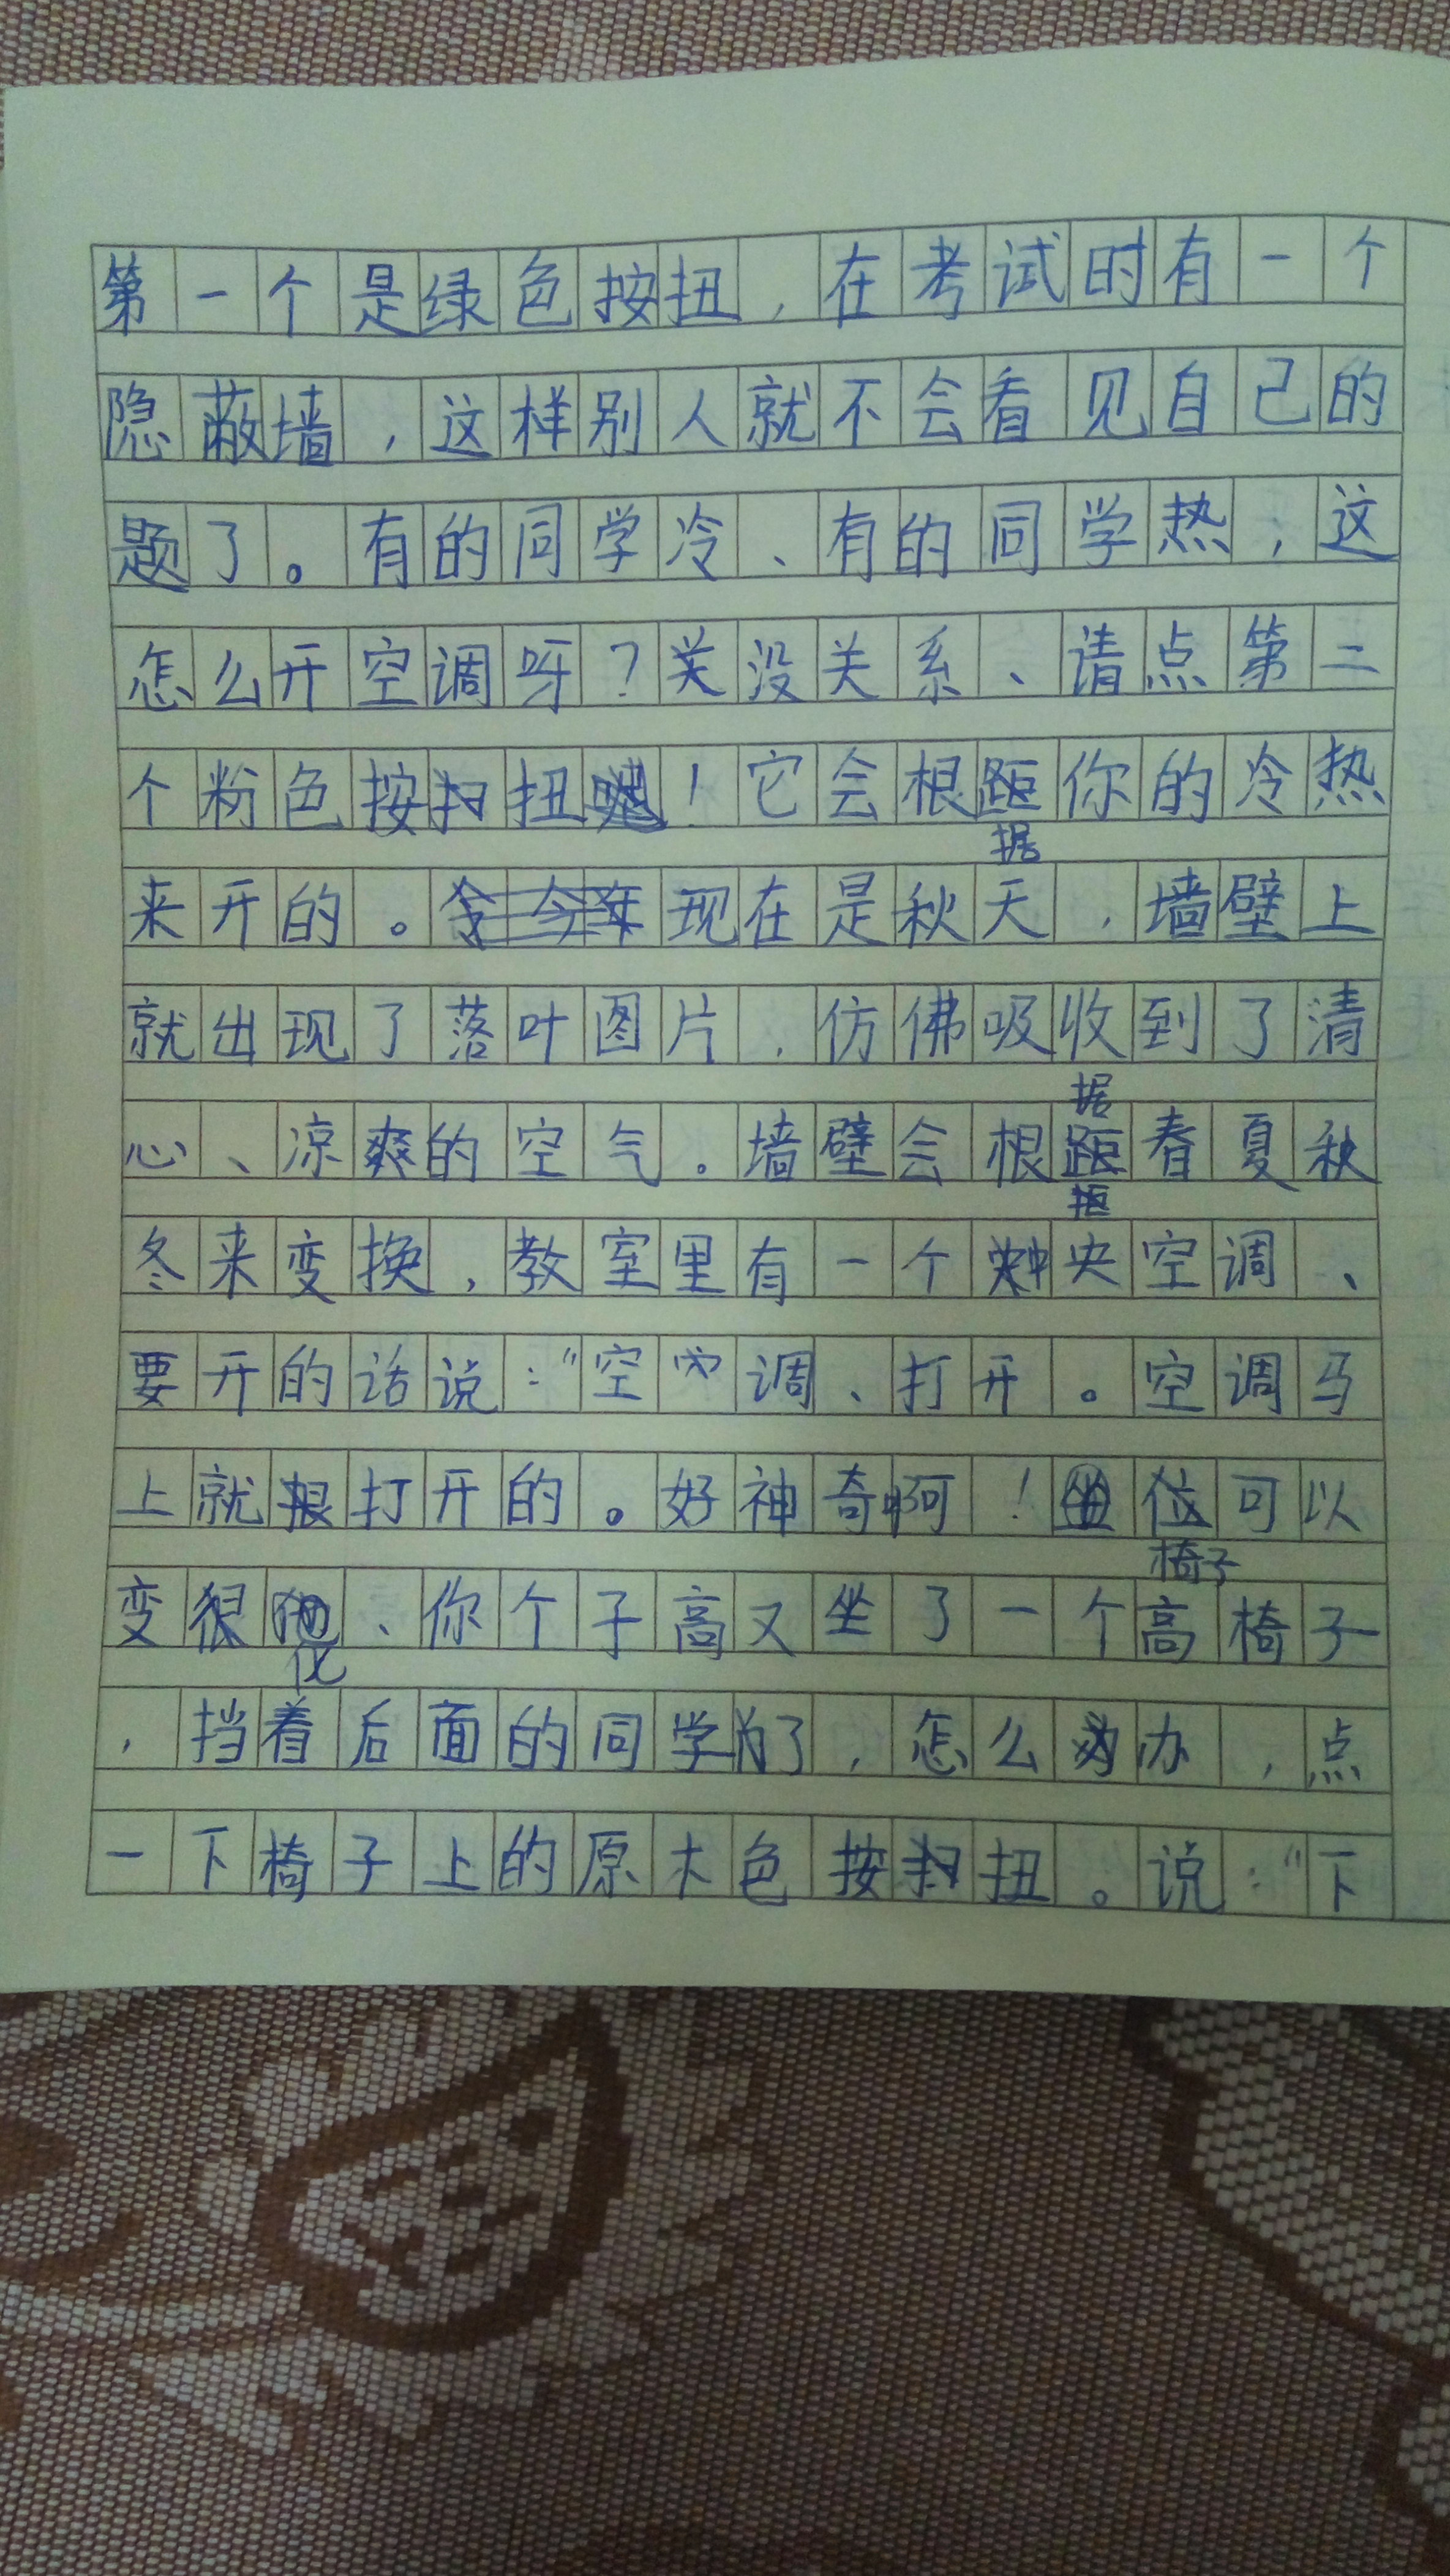 第一个是绿色按扭，在考试时有一个
隐蔽墙，这样别人就不会看见自己的
题了。有的同学冷、有的同学热，这
怎么开空调呀？关没关系、请点第二
个粉色按扭！它会根距你的冷热
据
来开的。现在是秋天，墙壁上
就出现了落叶图片，仿佛吸收到了清
据
心、凉爽的空气。墙壁会根距春夏秋
拒
冬来变换，教室里有一个中央空调、
要开的话说：“空调、打开。空调马
上就打开的。好神奇啊！位可以
椅子
变很、你个子高又坐了一个高椅子
化
，挡着后面的同学了，怎么办，点
一下椅子上的原木色按扭。说：“下